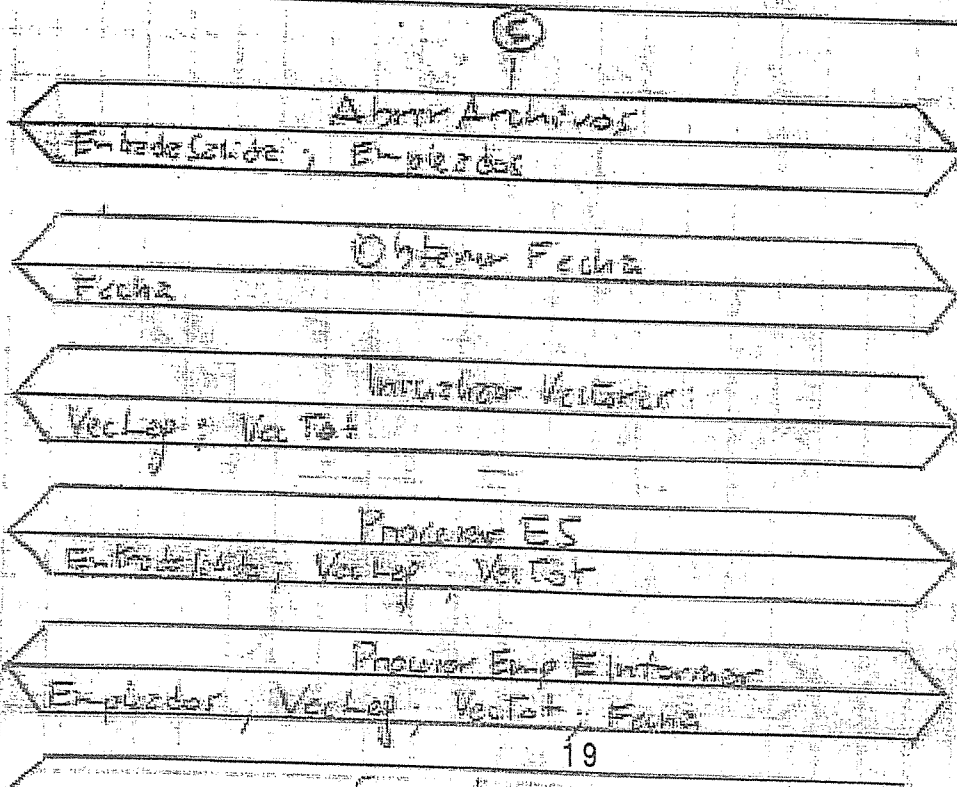 E
Abrir Archivos
EntradaSalida ; Empleados
Obtener Fecha
Fecha
Inicializar Vectores
VecLeg ; VecTot
Procesar ES
EntradaSalida , VecLeg , VecTot
Procesar Emp E Informar
Empleados , VecLeg , VecTot , Fecha
19